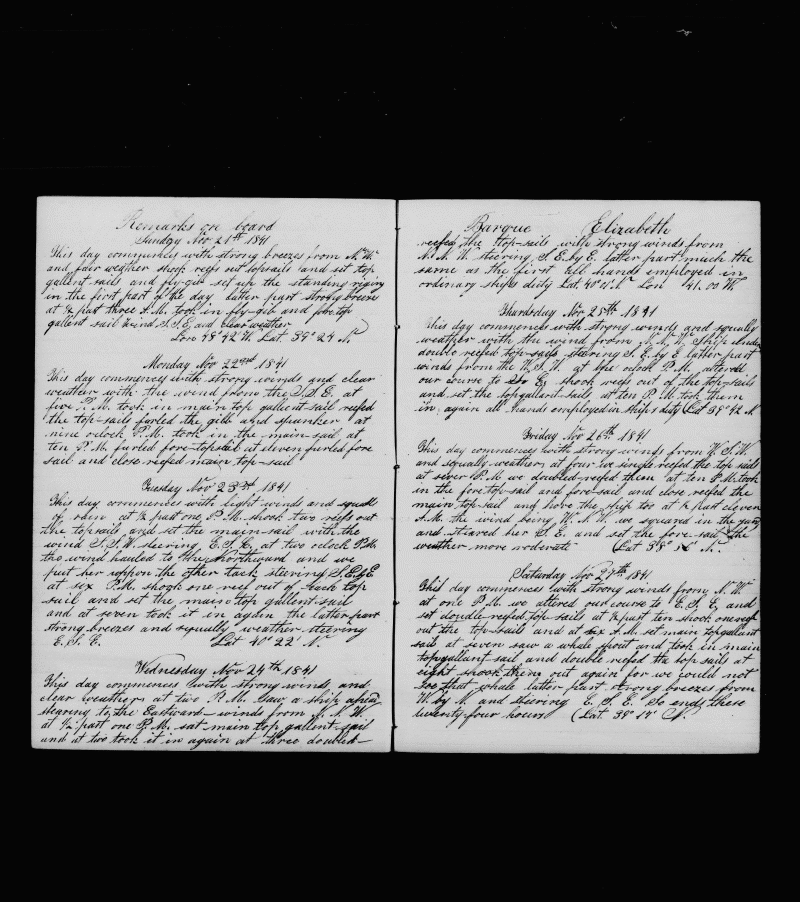 Remarks on board
Sunday Nov 21st 1841
This day commences with strong breezes from N.W.
and fair weather shook reefs out topsails and set top
gallent sails and fly-gib set up the standing riging
in the first part of the day latter part strong breezes
at ½ past three A.M. took in fly-gib and foretop
gallent sail Wind S.S.E. and clear weather
Lon 48° 42 W. Lat 39° 24 N.
Monday Nov 22nd 1841
This day commences with strong winds and clear
weather with the wind from the S.S.E. at
five P.M. took in main top gallent sail reefed
the top-sails furled the gibb and spanker at
nine oclock P.M. took in the main-sail at
ten P.M. furled fore-topsail at eleven furled fore
sail and close reefed main top-sail
Tuesday Nov 23rd 1841
This day commences with light winds and squalls
of rain at ½ past one P.M. shook two reefs out
the topsails and set the main-sail with the
wind S.S.W. steering E.S.E. at two oclock P.M.
the wind hauled to the Northward and we
put her uppon the other tack steering S.E.byE
at six P.M. shook one reef out of each top
sail and set the main top gallent-sail
and at seven took it in again the latter part
strong breezes and squally weather steering
E.S.E. Lat 40° 22' N.
Wednesday Nov 24th 1841
This day commences with strong winds and
clear weather at two P.M. Saw a ship ahead
stearing to the Eastward winds from N.N.W.
at ½ past one P.M. sat main top gallent-sail
and at two took it in again at three doubled-
Barque Elizabeth
reefed the top-sails with strong winds from
N.N.W. steering S.E. by E. latter part much the
same as the first all hands employed in
ordinary ships duty Lat 40° N. Lon 41.00 W.
Thursday Nov 25th 1841
This day commences with strong winds and squally
weather with the wind from N.N.W. Ship under
double reefed top-sails steering S.E. by E latter part
winds from the W.S.W. at oclock P.M. altered
our course to E. shook reefs out of the top-sails
and set the topgallant sails at ten P.M. took them
in again all hands employed in ship's duty Lat 39° 42 N
Friday Nov 26th 1841
This day commences with strong winds from W.S.W.
and squally weather at four we single reefed the top sails
at seven P.M. we doubled-reefed them at ten P.M. took
in the fore top-sail and fore-sail and close reefed the
main top-sail and hove the ship too at ½ past eleven
A.M. the wind being W.N.W. we squared in the yards
and steared her S.E. and set the fore-sail the
weather more moderate Lat 38° N.
Saturday Nov 27th 1841
This day commences with strong winds from N.W.
at one P.M. we altered our course to E.S.E. and
set double reefed top-sails at ½ past ten shook one reef
out the top-sails and at six A.M. set main topgallant
sails at seven saw a whale spout and took in main
topgallant sail and double reefed the top sails at
eight shook them out again for we could not
see that whale latter part strong breezes from
W. by N. and steering E.S.E. So ends these
twenty-four hours (Lat. 38° 14' N.